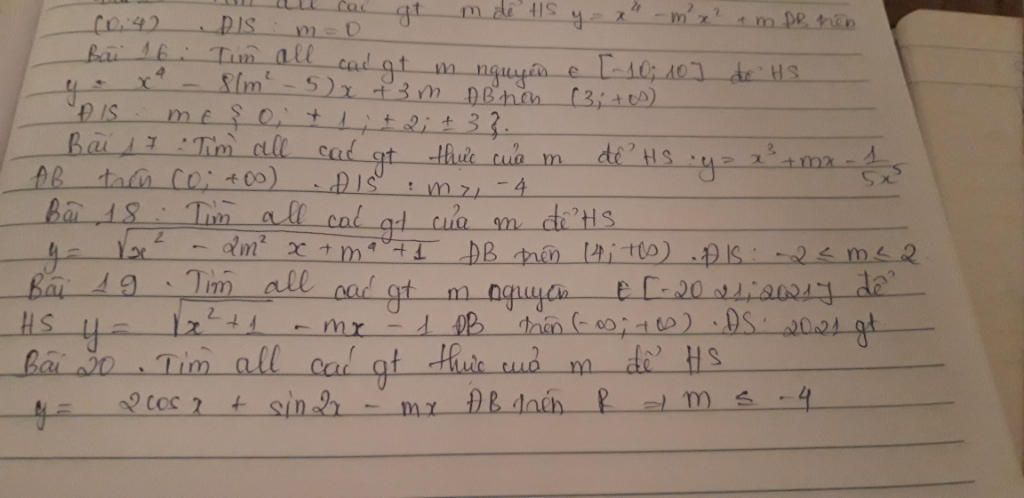 all các gt m để HS y = x⁴ - m²x² + m ĐB trên
(0;4) . Đ/S : m = 0
Bài 16 : Tìm all các gt m nguyên ∈ [-10;10] để HS
y = x⁴ - 8(m² - 5)x + 3m ĐB trên (3;+∞)
Đ/S : m ∈ { 0; ±1; ±2; ±3 }.
Bài 17 : Tìm all các gt thực của m để HS : y = x³ + mx - 1/5x⁵
ĐB trên (0; +∞) . Đ/S : m ≥ -4
Bài 18 : Tìm all các gt của m để HS
y = √(x² - 2m²x + m⁴ + 1) ĐB trên (4;+∞) . Đ/S : -2 ≤ m ≤ 2
Bài 19 . Tìm all các gt m nguyên ∈ [-2021;2021] để
HS y = √(x²+1) - mx - 1 ĐB trên (-∞;+∞) . ĐS : 2021 gt
Bài 20 . Tìm all các gt thực của m để HS
y = 2cosx + sin2x - mx ĐB trên R ⇒ m ≤ -4